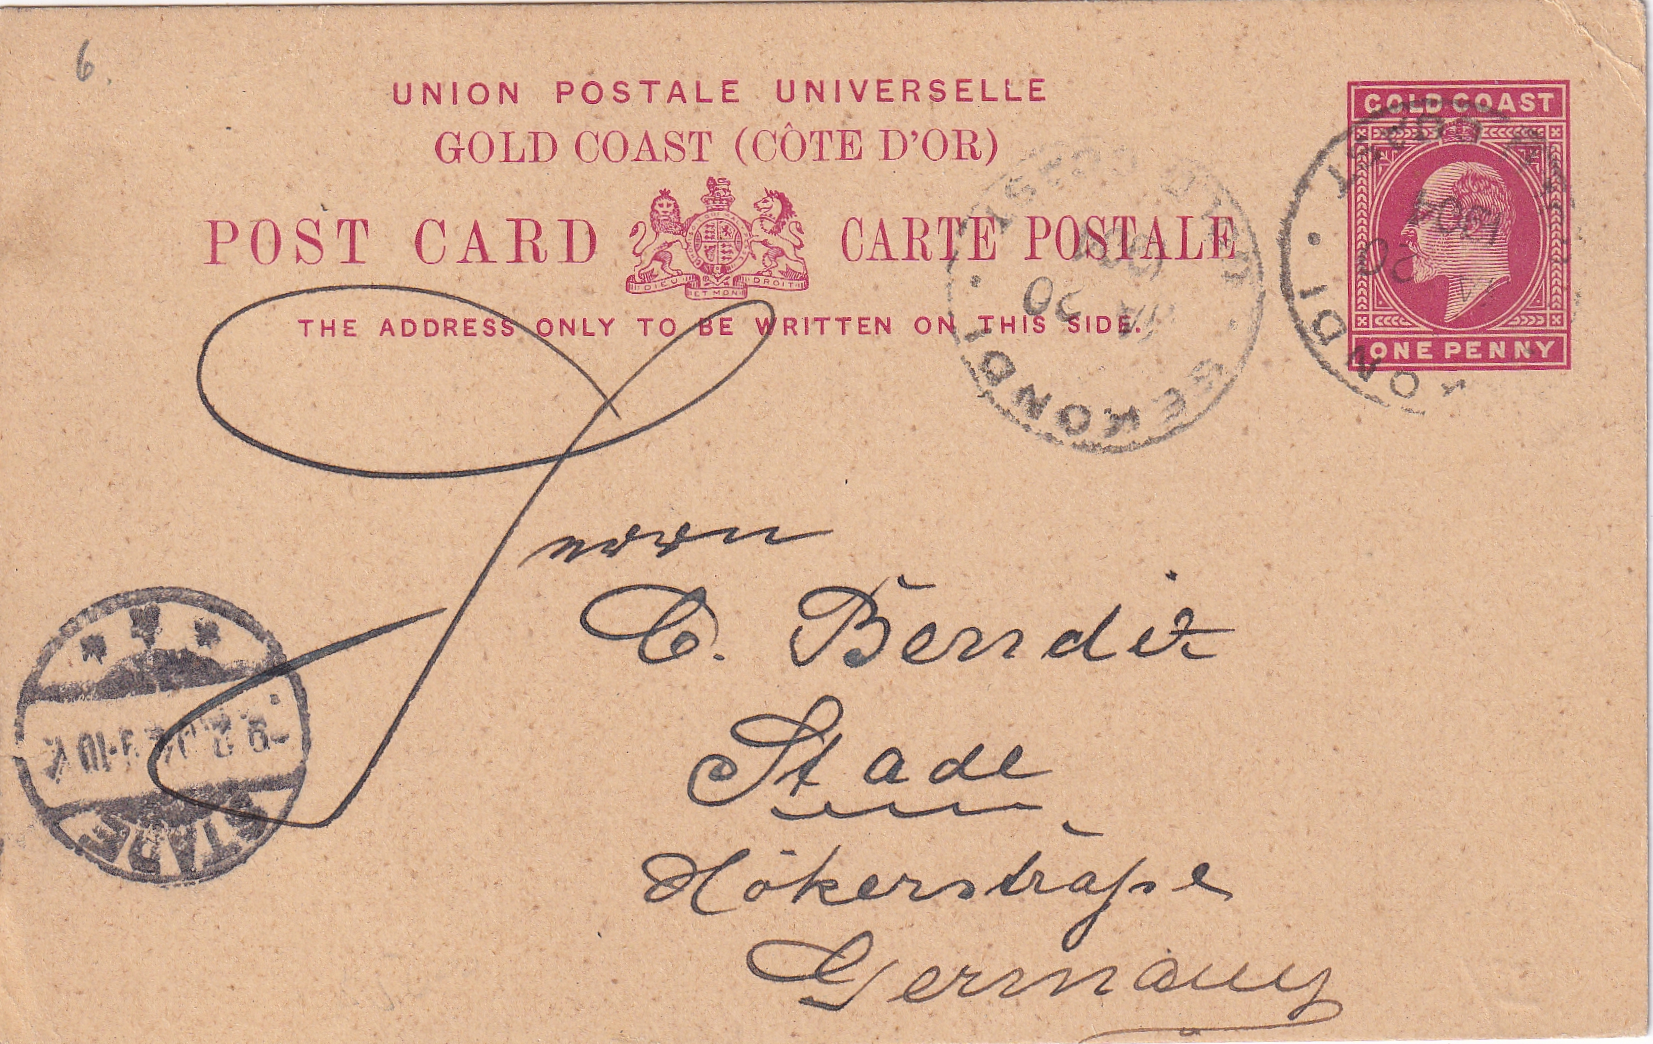 6.
UNION POSTALE UNIVERSELLE
GOLD COAST (CÔTE D'OR)
POST CARD CARTE POSTALE
DIEU ET MON DROIT
THE ADDRESS ONLY TO BE WRITTEN ON THIS SIDE.
GOLD COAST
ONE PENNY
GOLD COAST
SEKONDI
20
GOLD COAST
KONDI
20
1904
Herrn
C. Bendix
Stade
Hökerstraße
Germany
STADE